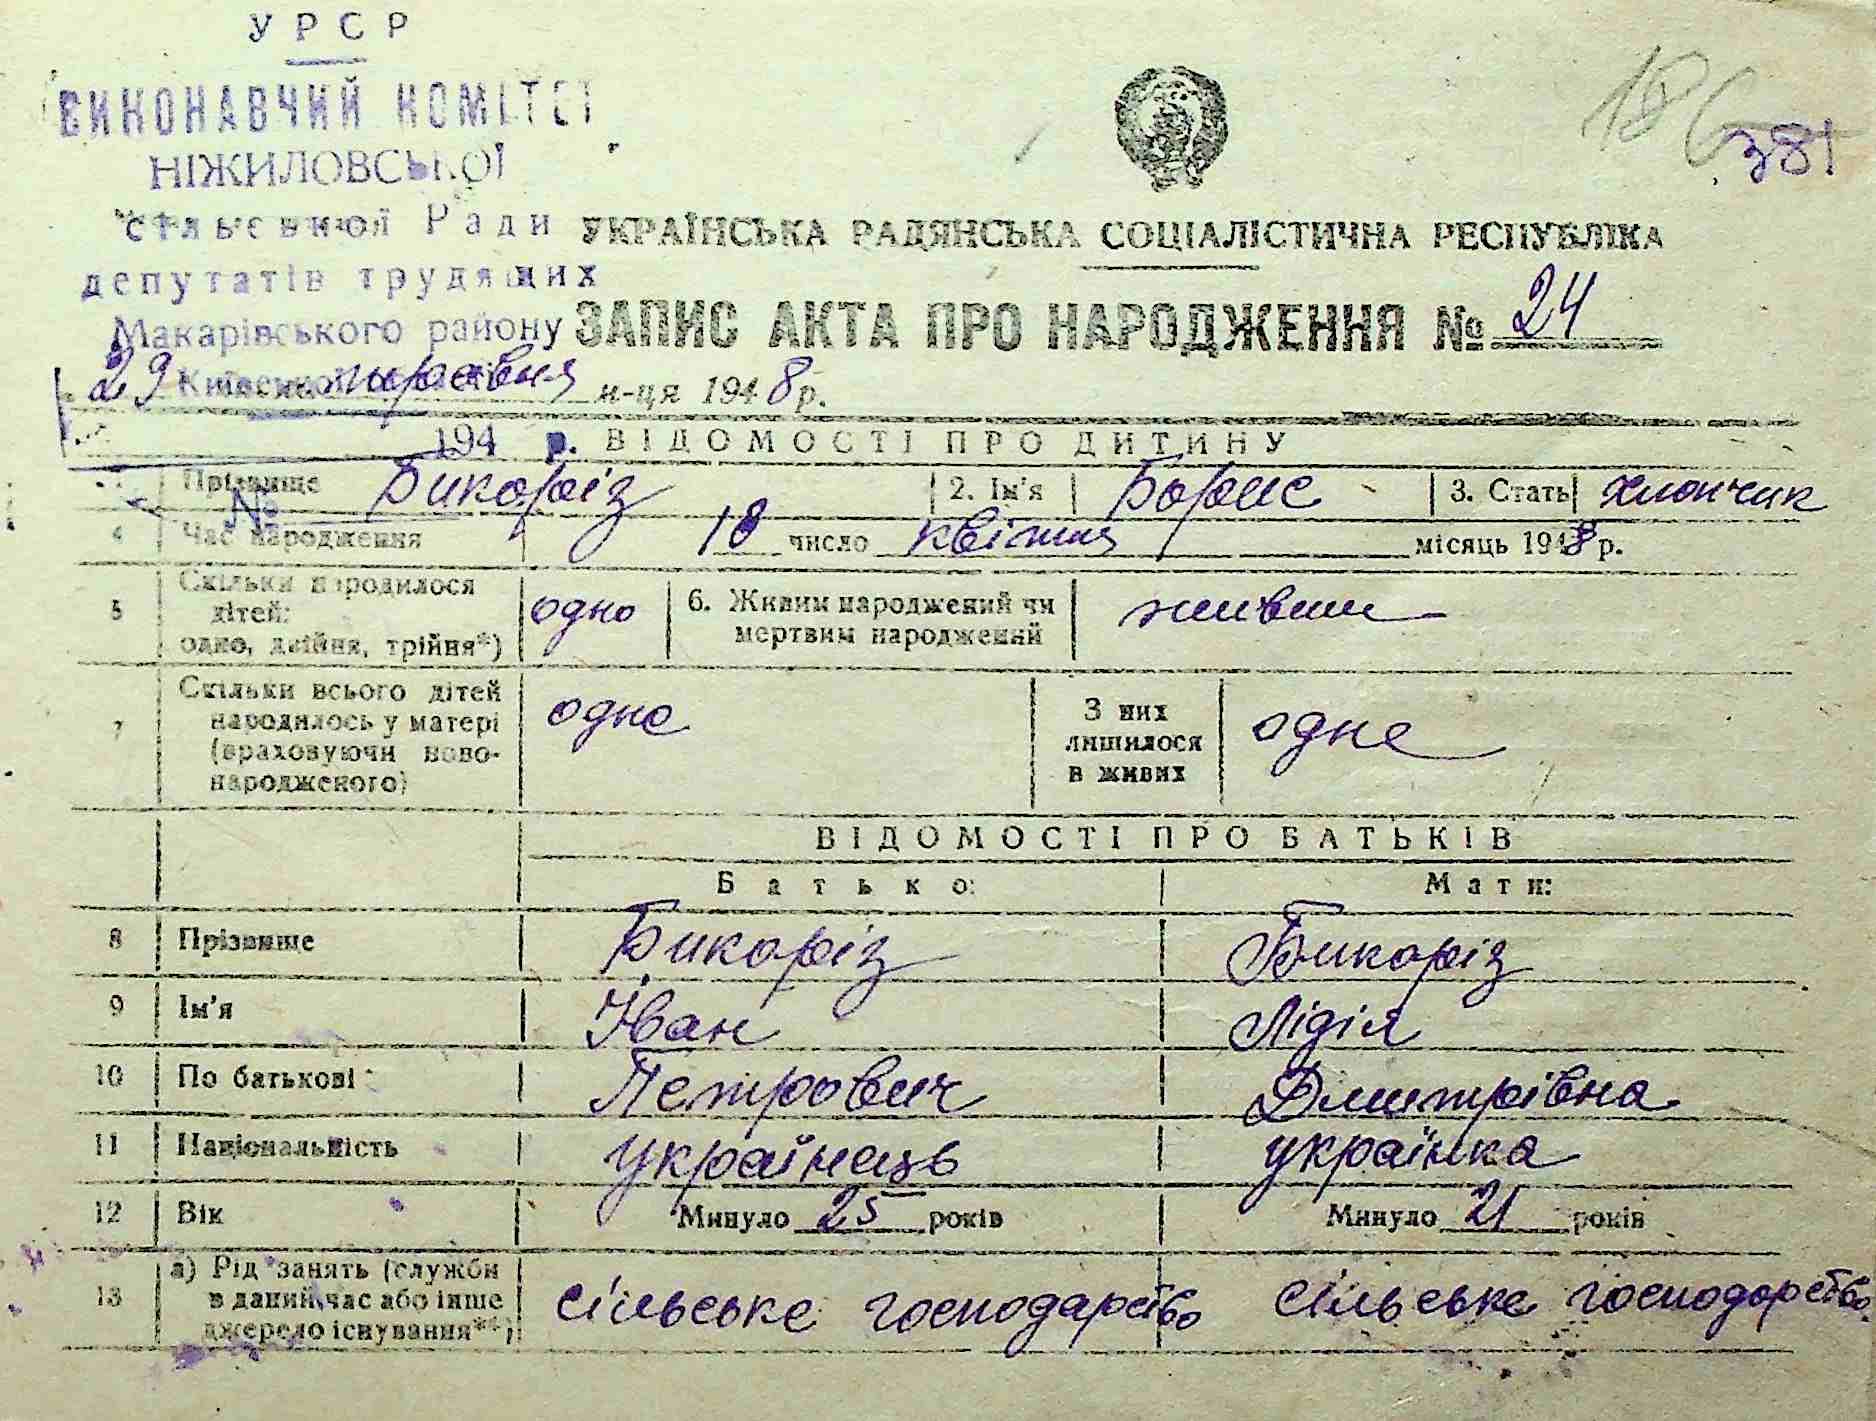 УРСР
ВИКОНАВЧИЙ КОМІТЕТ
НІЖИЛОВСЬКОЇ
сільської Ради
депутатів трудящих
Макарівського району
Київської області
194 р.
№
186
381
УКРАЇНСЬКА РАДЯНСЬКА СОЦІАЛІСТИЧНА РЕСПУБЛІКА
ЗАПИС АКТА ПРО НАРОДЖЕННЯ № 24
29 травня м-ця 1948 р.
ВІДОМОСТІ ПРО ДИТИНУ
Прізвище Бикоріз 2. Ім'я Борис 3. Стать хлопчик
4 Час народження 18 число квітня місяць 1948 р.
5 Скільки народилося дітей: одно, двійня, трійня*) одно 6. Живим народжений чи мертвим народжений живим
7 Скільки всього дітей народилось у матері (враховуючи новонародженого) одно З них лишилося в живих одне
ВІДОМОСТІ ПРО БАТЬКІВ
Батько: Мати:
8 Прізвище Бикоріз Бикоріз
9 Ім'я Іван Лідія
10 По батькові Петрович Дмитрівна
11 Національність українець українка
12 Вік Минуло 25 років Минуло 21 років
13 а) Рід занять (служби в даний час або інше джерело існування**) сільське господарство сільське господарство